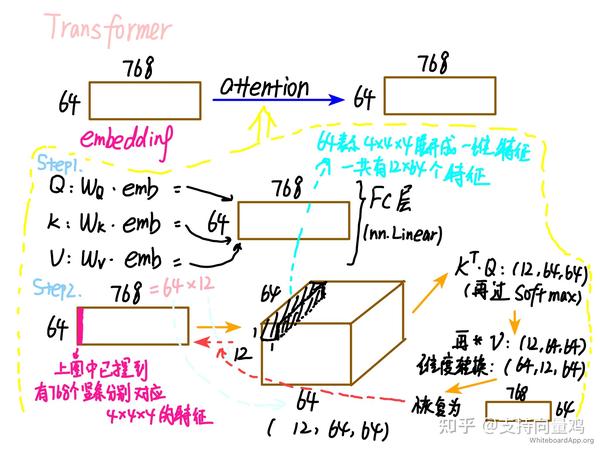 Transformer
768
64
embedding
attention
768
64
64表示 4x4x4展开成一维特征
一共有12x64个特征
Step1.
Q: WQ · emb =
K: WK · emb =
V: WV · emb =
768
64
FC层
(nn.Linear)
Step2.
768 = 64 x 12
64
上图中已提到
有768个竖条分别对应
4x4x4的特征
64
1
1
12
64
( 12, 64, 64)
K^T·Q: (12, 64, 64)
(再过 Softmax)
再 * V: (12, 64, 64)
维度转换: (64, 12, 64)
恢复为
768
64
知乎 @支持向量鸡
WhiteboardApp.org